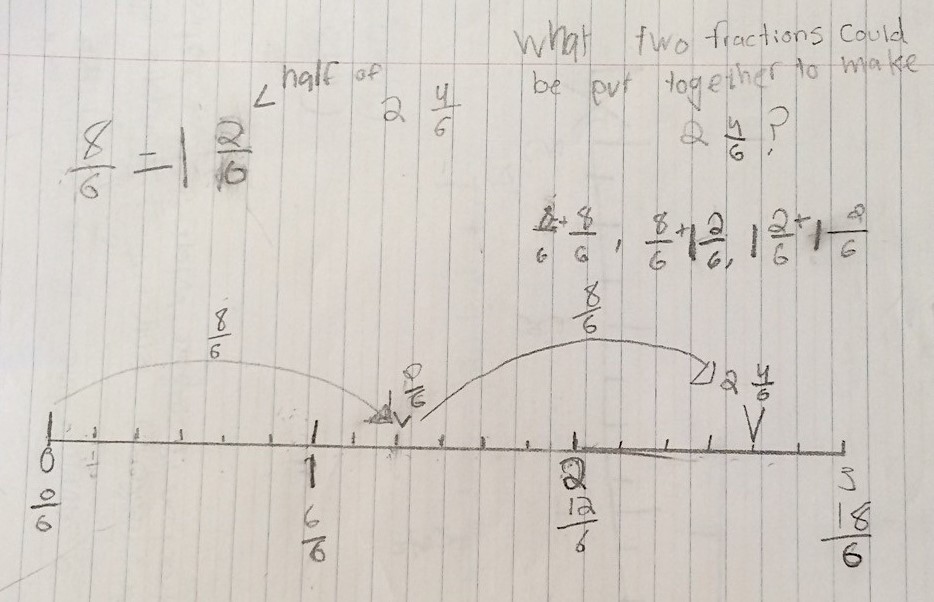 What two fractions could
be put together to make
2 4/6?
< half of 2 4/6
8/6 = 1 2/6
8/6 + 8/6, 8/6 + 1 2/6, 1 2/6 + 1 2/6
8/6
8/6
8/6
2 4/6
0 1 2 3
0/6 6/6 12/6 18/6